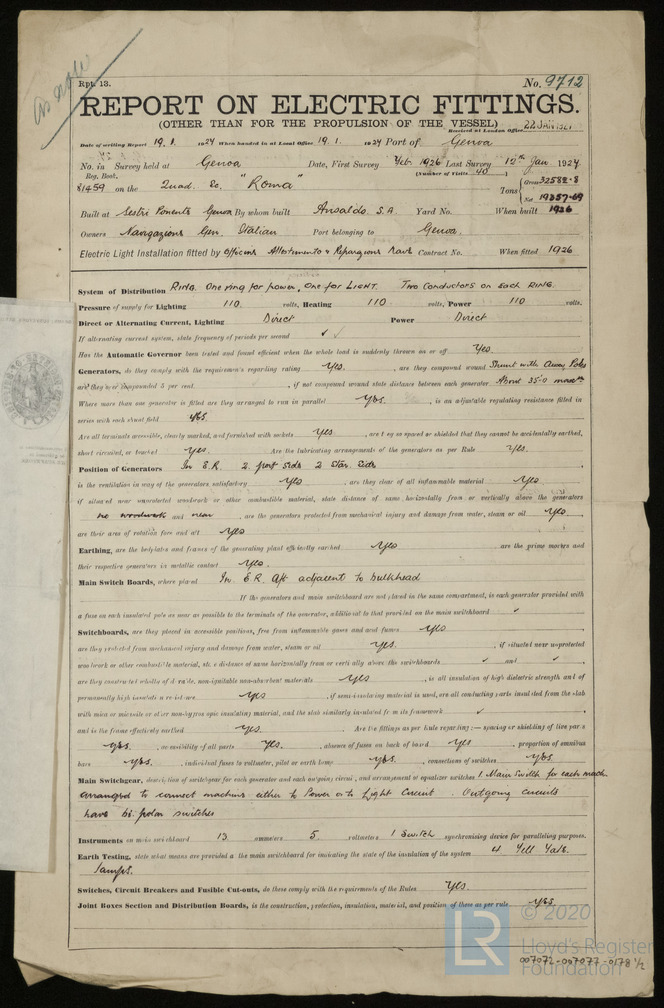 Rpt. 13.
No. 9712
REPORT ON ELECTRIC FITTINGS.
(OTHER THAN FOR THE PROPULSION OF THE VESSEL)
Received at London Office 22 JAN 1927
Date of writing Report 19. 1. 1927 When handed in at Local Office 19. 1. 1927 Port of Genoa
No. in Survey held at Genoa Date, First Survey Feb. 1926 Last Survey 12th Jan 1927
Reg. Book. (Number of Visits 40)
81459 on the Quad. Sc. "Roma" Tons { Gross 32582.8
Net 19357.69
Built at Sestri Ponente Genoa By whom built Ansaldo S.A Yard No. When built 1926
Owners Navigazione Gen. Italian Port belonging to Genoa.
Electric Light Installation fitted by Officine Contract No. When fitted 1926
System of Distribution RING. One ring for power, one for LIGHT. Two Conductors on each RING.
Pressure of supply for Lighting 110 volts, Heating 110 volts, Power 110 volts.
Direct or Alternating Current, Lighting Direct Power Direct
If alternating current system, state frequency of periods per second ✓
Has the Automatic Governor been tested and found efficient when the whole load is suddenly thrown on or off Yes.
Generators, do they comply with the requirements regarding rating Yes. , are they compound wound Shunt with Poles
are they over compounded 5 per cent. , if not compound wound state distance between each generator About 35.0
Where more than one generator is fitted are they arranged to run in parallel Yes. , is an adjustable regulating resistance fitted in
series with each shunt field Yes.
Are all terminals accessible, clearly marked, and furnished with sockets Yes , are they so spaced or shielded that they cannot be accidentally earthed,
short circuited, or touched Yes. Are the lubricating arrangements of the generators as per Rule Yes.
Position of Generators In E.R. 2 port side 2 Star. side
is the ventilation in way of the generators satisfactory Yes , are they clear of all inflammable material Yes
if situated near unprotected woodwork or other combustible material, state distance of same horizontally from or vertically above the generators
no woodwork and near , are the generators protected from mechanical injury and damage from water, steam or oil Yes
are their axes of rotation fore and aft Yes
Earthing, are the bedplates and frames of the generating plant efficiently earthed Yes are the prime movers and
their respective generators in metallic contact Yes.
Main Switch Boards, where placed In E.R Aft adjacent to bulkhead
If the generators and main switchboard are not placed in the same compartment, is each generator provided with
a fuse on each insulated pole as near as possible to the terminals of the generator, additional to that provided on the main switchboard ✓
Switchboards, are they placed in accessible positions, free from inflammable gases and acid fumes Yes
are they protected from mechanical injury and damage from water, steam or oil Yes. , if situated near unprotected
woodwork or other combustible material, state distance of same horizontally from or vertically above the switchboards ✓ and ✓
are they constructed wholly of durable, non-ignitable non-absorbent materials Yes , is all insulation of high dielectric strength and of
permanently high insulation resistance Yes , if semi-insulating material is used, are all conducting parts insulated from the slab
with mica or micanite or other non-hygroscopic insulating material, and the slab similarly insulated from its framework ✓
and is the frame effectively earthed Yes. Are the fittings as per Rule regarding:— spacing or shielding of live parts
Yes. , accessibility of all parts Yes. , absence of fuses on back of board Yes , proportion of omnibus
bars Yes. , individual fuses to voltmeter, pilot or earth lamp Yes. , connections of switches Yes.
Main Switchgear, description of switchgear for each generator and each outgoing circuit, and arrangement of equalizer switches 1 Main Switch for each mach
arranged to connect machine either to Power or to Light Circuit. Outgoing circuits
have bi. polar switches
Instruments on main switchboard 13 ammeters 5 voltmeters 1 Switch synchronising device for paralleling purposes.
Earth Testing, state what means are provided at the main switchboard for indicating the state of the insulation of the system 4 Tell Tale
lamps.
Switches, Circuit Breakers and Fusible Cut-outs, do these comply with the requirements of the Rules Yes
Joint Boxes Section and Distribution Boards, is the construction, protection, insulation, material, and position of these as per rule Yes
LR
© 2020
Lloyd's Register
Foundation
007072-007077-0178 1/2